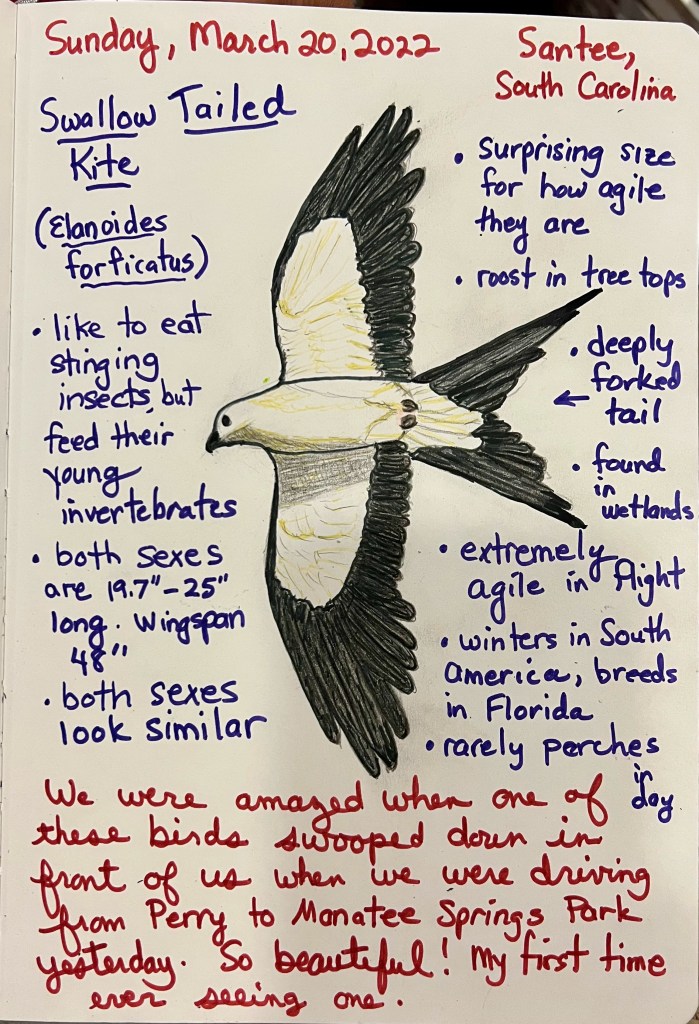 Sunday, March 20, 2022
Santee,
South Carolina
Swallow Tailed
Kite
(Elanoides
forficatus)
• like to eat
stinging
insects, but
feed their
young
invertebrates
• both sexes
are 19.7"-25"
long. Wingspan
48"
• both sexes
look similar
• surprising size
for how agile
they are
• roost in tree tops
• deeply
forked
← tail
• found
in
wetlands
• extremely
agile in flight
• winters in South
America, breeds
in Florida
• rarely perches
in
day
We were amazed when one of
these birds swooped down in
front of us when we were driving
from Perry to Manatee Springs Park
yesterday. So beautiful! My first time
ever seeing one.